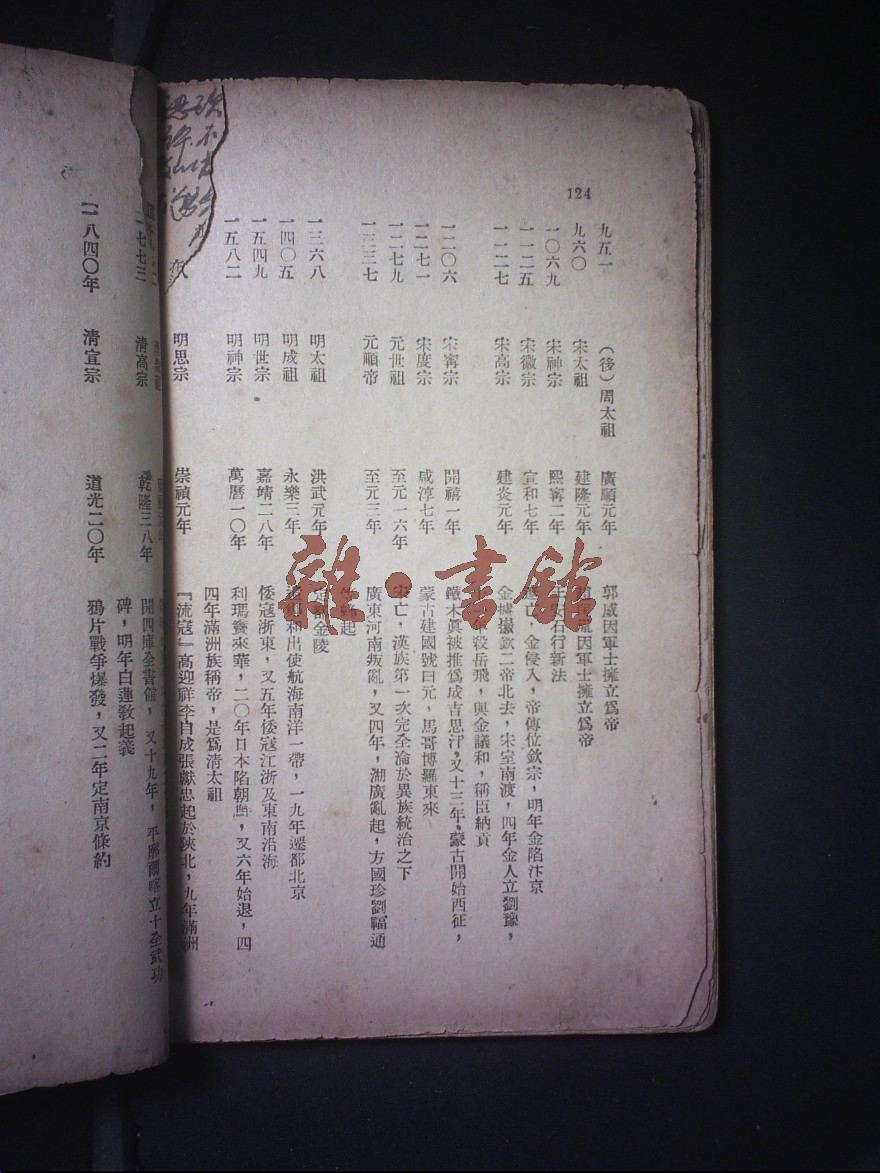 124
九五一 （後）周太祖 廣順元年 郭威因軍士擁立爲帝
九六〇 宋太祖 建隆元年 因軍士擁立爲帝
一〇六九 宋神宗 熙甯二年 王安石行新法
一一二五 宋徽宗 宣和七年 亡，金侵入，帝傳位欽宗，明年金陷汴京
一一二七 宋高宗 建炎元年 金擄徽欽二帝北去，宋室南渡，四年金人立劉豫，
年殺岳飛，與金議和，稱臣納貢
一二〇六 宋甯宗 開禧一年 鐵木眞被推爲成吉思汗，又十三年，蒙古開始西征，
一二七一 宋度宗 咸淳七年 蒙古建國號曰元，馬哥博羅東來
一二七九 元世祖 至元一六年 宋亡，漢族第一次完全淪於異族統治之下
一三三七 元順帝 至元三年 廣東河南叛亂，又四年，湖廣亂起，方國珍劉福通
起
一三六八 明太祖 洪武元年 定都金陵
一四〇五 明成祖 永樂三年 和出使航海南洋一帶，一九年遷都北京
一五四九 明世宗 嘉靖二八年 倭寇浙東，又五年倭寇江浙及東南沿海
一五八二 明神宗 萬曆一〇年 利瑪竇來華，二〇年日本陷朝鮮，又六年始退，四
四年滿洲族稱帝，是爲清太祖
八 明思宗 崇禎元年 『流寇』高迎祥李自成張獻忠起於陝北，九年滿洲
一七七三 清高宗 乾隆三八年 開四庫全書館，又十九年，平廓爾喀立十全武功
碑，明年白蓮敎起義
一八四〇年 清宣宗 道光二〇年 鴉片戰爭爆發，又二年定南京條約
雜·書館